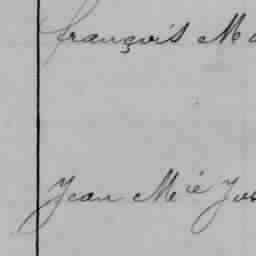 françois Ma
Jean Mie Jos